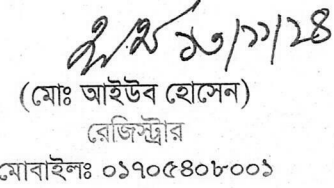 ১৩/১১/২৪
(মোঃ আইউব হোসেন)
রেজিস্ট্রার
মোবাইলঃ ০১৭০৫৪০৮০০১